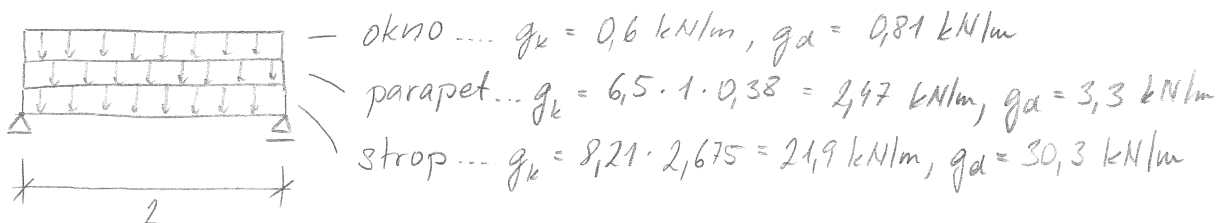 okno .... gk = 0,6 kN/m, gd = 0,81 kN/m
parapet... gk = 6,5 · 1 · 0,38 = 2,47 kN/m, gd = 3,3 kN/m
strop .... gk = 8,21 · 2,675 = 21,9 kN/m, gd = 30,3 kN/m
2